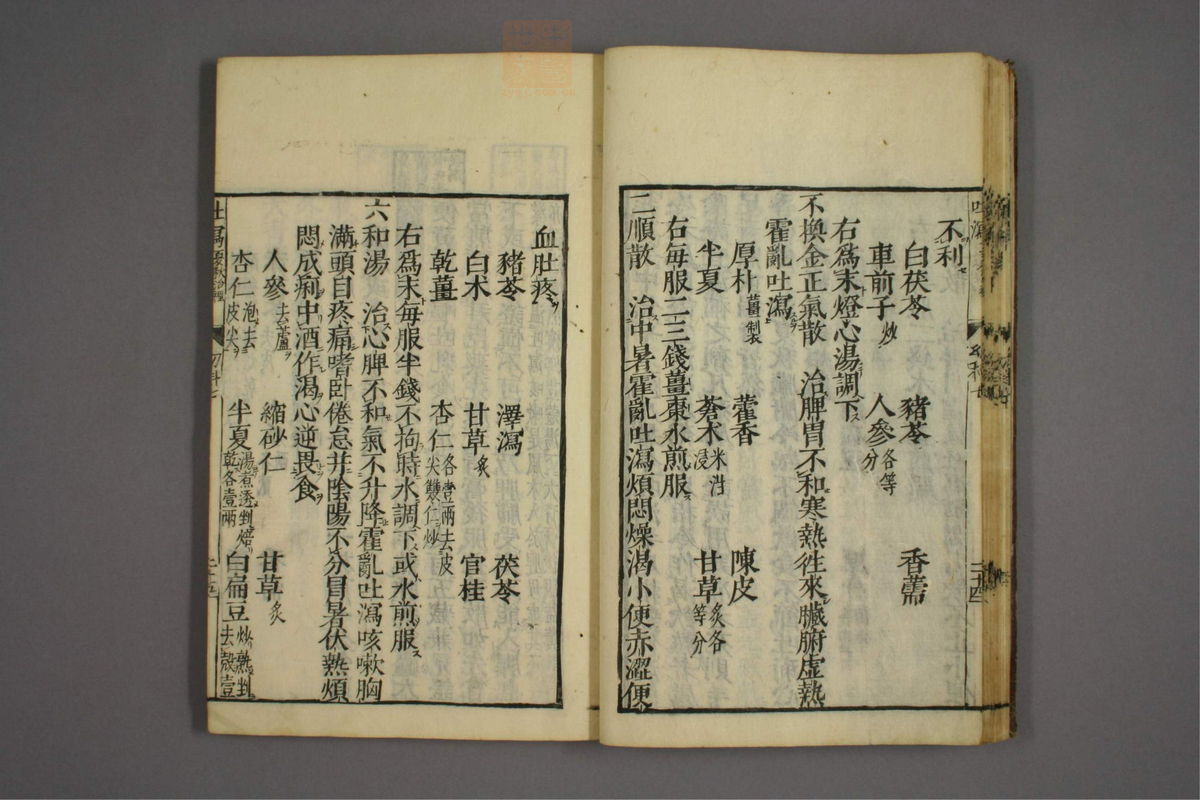 不利
白茯苓 豬苓 香薷
車前子炒 人參各等分
右爲末燈心湯調下
不換金正氣散 治脾胃不和寒熱徃來臟腑虛熱
霍亂吐瀉
厚朴薑製 藿香 陳皮
半夏 蒼朮米泔浸 甘草炙各等分
右每服二三錢薑棗水煎服
二順散 治中暑霍亂吐瀉煩悶燥渴小便赤澀便
血肚疼
豬苓 澤瀉 茯苓
白朮 甘草炙 官桂
乾薑 杏仁各壹兩去皮尖雙仁炒
右爲末每服半錢不拘時水調下或水煎服
六和湯 治心脾不和氣不升降霍亂吐瀉咳嗽胸
滿頭目疼痛嗜卧倦怠并陰陽不分冒暑伏熱煩
悶成痢中酒作渴心逆畏食
人參去蘆 縮砂仁 甘草炙
杏仁泡去皮尖 半夏湯煮透剉焙乾各壹兩 白扁豆炒熟剉去殼壹